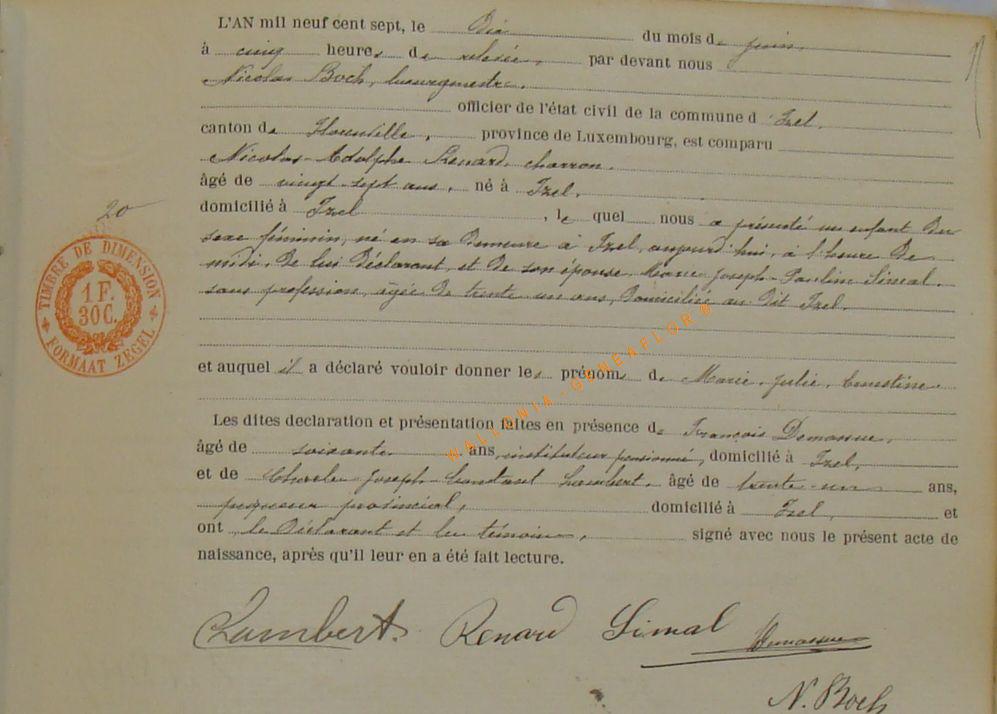 L'AN mil neuf cent sept, le Dix du mois de juin,
à cinq heures de relevée, par devant nous
Nicolas Boch, bourgmestre,
officier de l'état civil de la commune d'Izel,
canton de Florenville, province de Luxembourg, est comparu
Nicolas-Adolphe Renard, charron,
âgé de vingt-sept ans, né à Izel,
domicilié à Izel, lequel nous a présenté un enfant du
sexe féminin, né en sa demeure à Izel, aujourd'hui, à l'heure de
midi, de lui déclarant, et de son épouse, Marie-Joseph-Pauline Simal,
sans profession, âgée de trente-un ans, domiciliée au dit Izel.
et auquel il a déclaré vouloir donner les prénoms de Marie-Julie-Ernestine.
Les dites declaration et présentation faites en présence de François Demasue,
âgé de soixante ans, instituteur pensionné, domicilié à Izel,
et de Charles-Joseph-Constant Lambert, âgé de trente-un ans,
piqueur provincial, domicilié à Izel, et
ont le Déclarant et les témoins, signé avec nous le présent acte de
naissance, après qu'il leur en a été fait lecture.
Lambert Renard Simal
N. Boch
20
TIMBRE DE DIMENSION
1 F.
30 C.
FORMAAT ZEGEL
WALLONIA-GENEAFLOR®